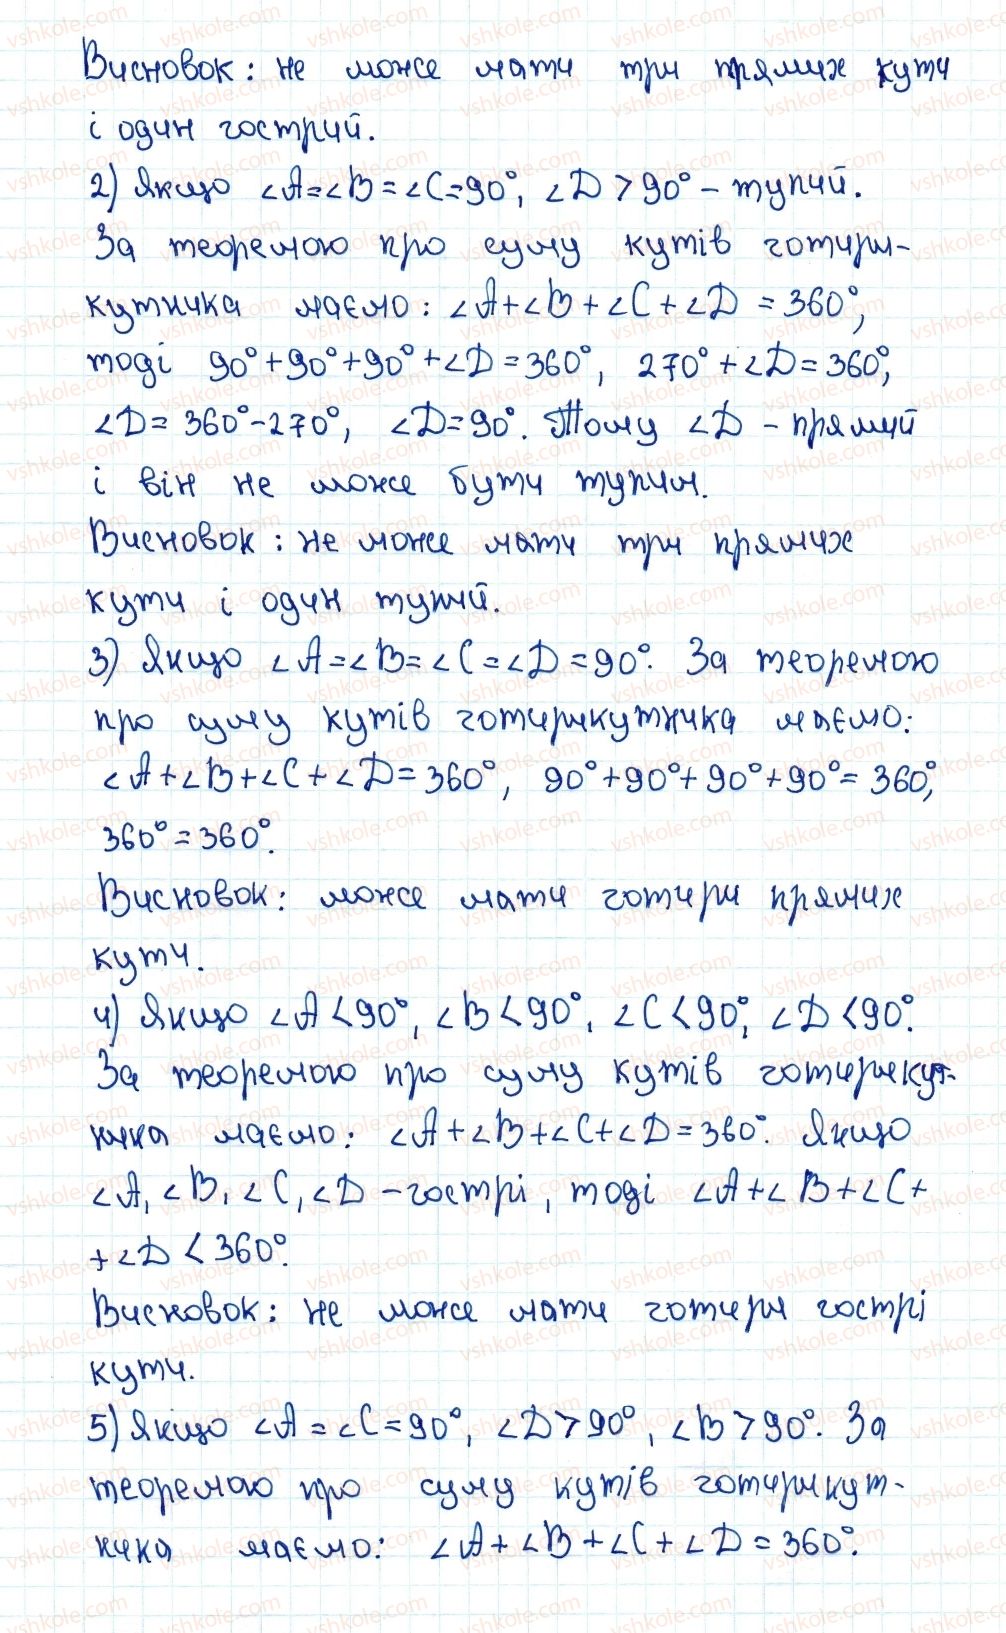 Висновок: не може мати три прямих кути
і один гострий.
2) Якщо ∠A=∠B=∠C=90°, ∠D>90° – тупий.
За теоремою про суму кутів чотири-
кутника маємо: ∠A+∠B+∠C+∠D=360°,
тоді 90°+90°+90°+∠D=360°, 270°+∠D=360°,
∠D=360°-270°, ∠D=90°. Тому ∠D – прямий
і він не може бути тупим.
Висновок: не може мати три прямих
кути і один тупий.
3) Якщо ∠A=∠B=∠C=∠D=90°. За теоремою
про суму кутів чотирикутника маємо:
∠A+∠B+∠C+∠D=360°, 90°+90°+90°+90°=360°,
360°=360°.
Висновок: може мати чотири прямих
кути.
4) Якщо ∠A<90°, ∠B<90°, ∠C<90°, ∠D<90°.
За теоремою про суму кутів чотирикут-
ника маємо: ∠A+∠B+∠C+∠D=360°. Якщо
∠A, ∠B, ∠C, ∠D – гострі, тоді ∠A+∠B+∠C+
+∠D<360°.
Висновок: не може мати чотири гострі
кути.
5) Якщо ∠A=∠C=90°, ∠D>90°, ∠B>90°. За
теоремою про суму кутів чотирикут-
ника маємо: ∠A+∠B+∠C+∠D=360°.